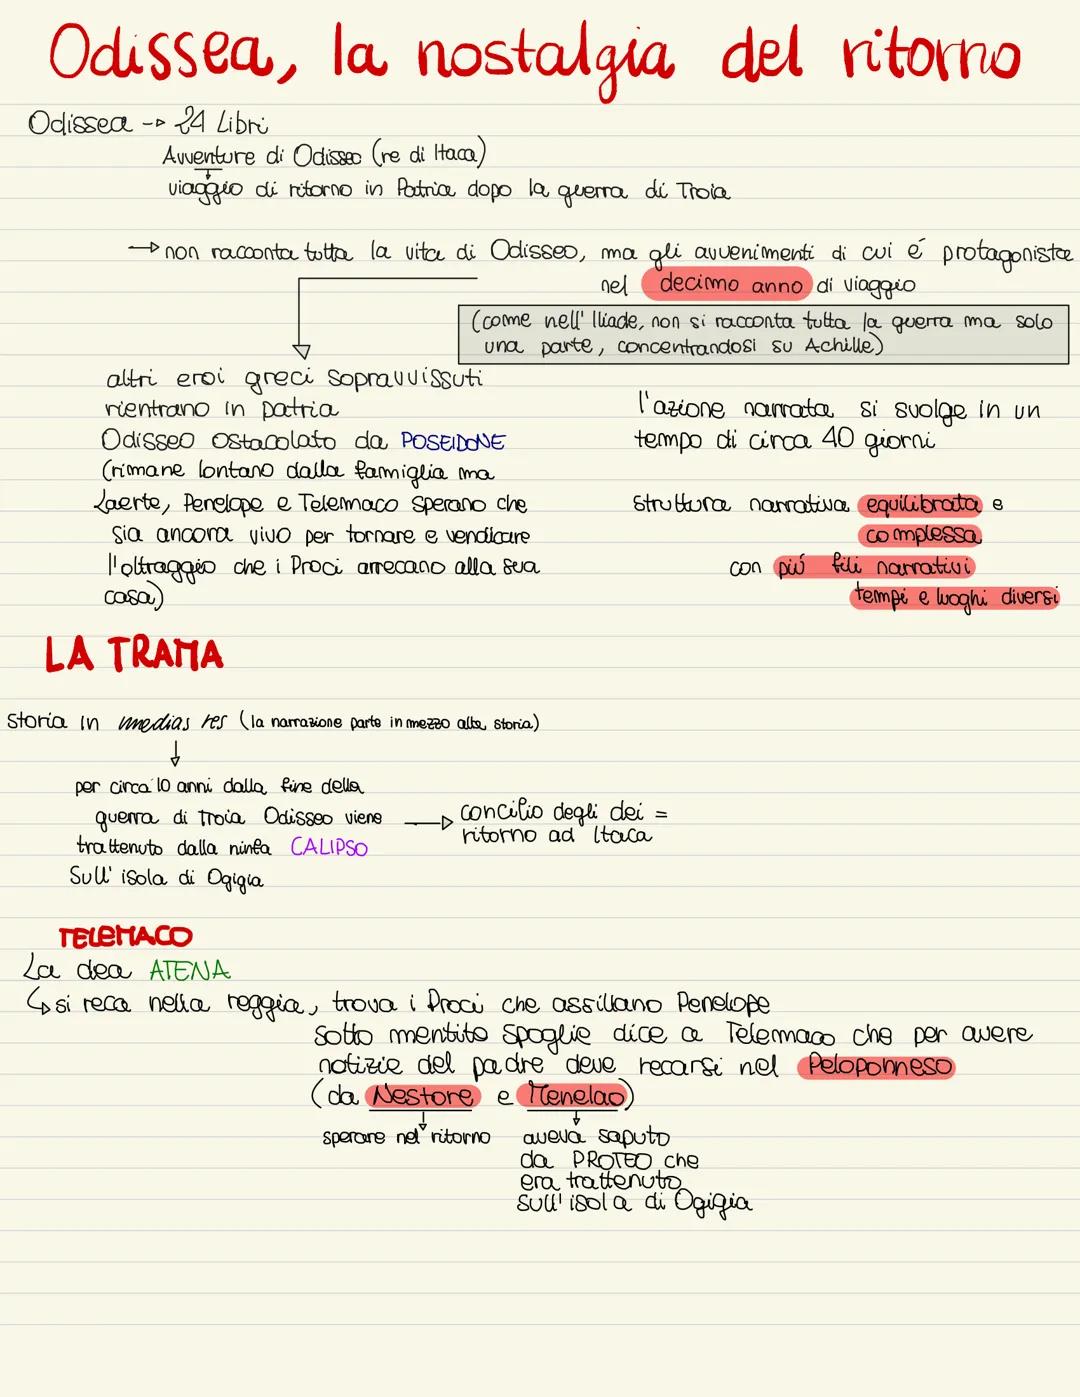 Odissea, la nostalgia del ritorno
Odissea -> 24 Libri
Avventure di Odisseo (re di Itaca)
viaggio di ritorno in Patria dopo la guerra di Troia
→ non racconta tutta la vita di Odisseo, ma gli avvenimenti di cui é protagonista
nel decimo anno di viaggio
(come nell'Iliade, non si racconta tutta la guerra ma solo
una parte, concentrandosi su Achille)
altri eroi greci sopravvissuti
rientrano in patria
Odisseo ostacolato da POSEIDONE
(rimane lontano dalla famiglia ma
Laerte, Penelope e Telemaco sperano che
sia ancora vivo per tornare e vendicare
l'oltraggio che i Proci arrecano alla sua
casa)
l'azione narrata si svolge in un
tempo di circa 40 giorni
struttura narrativa equilibrata e
complessa
con piú fili narrativi
tempi e luoghi diversi
LA TRAMA
storia in medias res (la narrazione parte in mezzo alla storia)
per circa 10 anni dalla fine della
guerra di Troia Odisseo viene
trattenuto dalla ninfa CALIPSO
sull'isola di Ogigia
→ concilio degli dei =
ritorno ad Itaca
TELEMACO
La dea ATENA
↳ si reca nella reggia, trova i Proci che assillano Penelope
sotto mentite spoglie dice a Telemaco che per avere
notizie del padre deve recarsi nel Peloponneso
(da Nestore e Menelao)
sperare nel ritorno
aveva saputo
da PROTEO che
era trattenuto
sull'isola di Ogigia